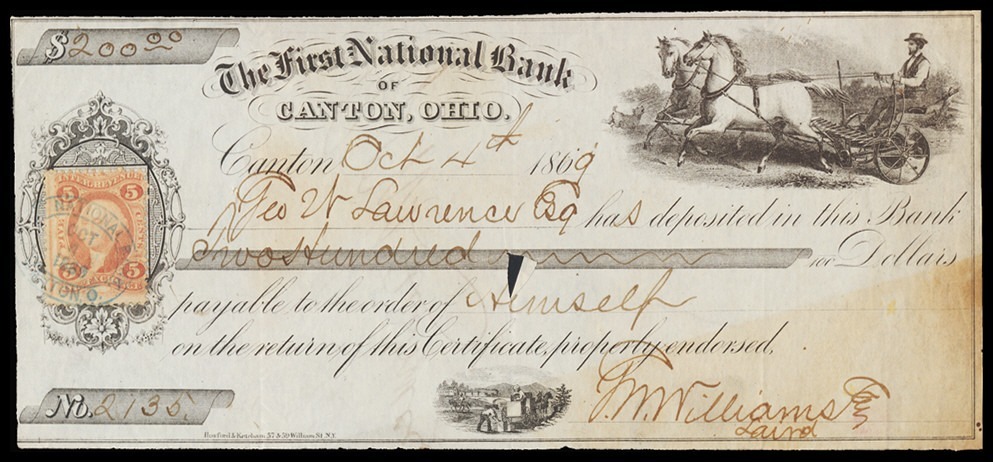 $200 00
The First National Bank
OF
CANTON, OHIO.
Canton Oct 4th 1869
Geo W Lawrence Esq has deposited in this Bank
Two Hundred 100 Dollars
payable to the order of Himself
on the return of this Certificate, properly endorsed,
No. 2135.
T. W. Williams
5 INTER. REVENUE 5
FIVE CENTS
NATIONAL
OCT
1869
CANTON O.
Hosford & Ketcham 57 & 59 William St. N.Y.